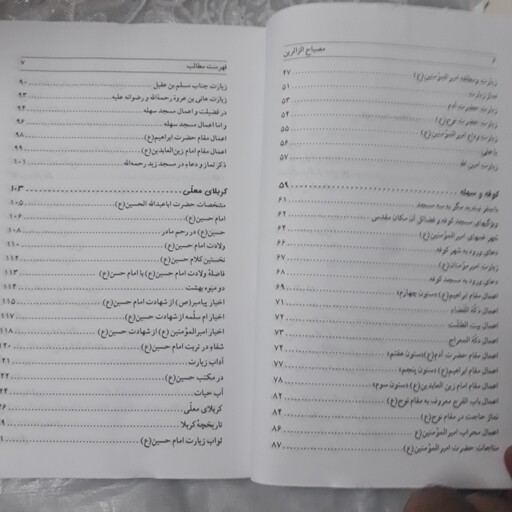 ۶ مصباح الزائرین
زیارت مطلقه امیرالمؤمنین(ع) ۴۷
نماز زیارت ۵۱
زیارت حضرت آدم ۵۳
زیارت حضرت نوح(ع) ۵۴
زیارت وداع امیرالمؤمنین(ع) ۵۵
۵۶
زیارت امین الله ۵۷
کوفه و سهله ۵۹
۶۱
ویژگیهای مسجد کوفه و فضائل آن مکان مقدس ۶۲
شهر غمهای امیرالمؤمنین(ع) ۶۴
دعای ورود به شهر کوفه ۶۶
زیارت ۶۷
دعای ورود به مسجد کوفه ۶۸
اعمال مقام ابراهیم(ع) «ستون چهارم» ۶۹
اعمال دکّة القضاء ۷۱
اعمال بیت الطشت ۷۲
اعمال دکّة المعراج ۷۳
اعمال مقام حضرت آدم(ع) «ستون هفتم» ۷۴
اعمال مقام ابراهیم(ع) «ستون پنجم» ۷۷
اعمال مقام امام زین العابدین(ع) «ستون سوم» ۷۸
اعمال باب الفرج معروف به مقام نوح(ع) ۸۲
نماز حاجت در مقام نوح(ع) ۸۴
اعمال محراب امیرالمؤمنین(ع) ۸۶
مناجات حضرت امیرالمؤمنین(ع) ۸۷
فهرست مطالب ۷
زیارت جناب مسلم بن عقیل ۹۰
زیارت هانی بن عروة رحمةالله و رضوانه علیه ۹۳
در فضیلت و اعمال مسجد سهله ۹۴
و اما اعمال مسجد سهله ۹۶
اعمال مقام حضرت ابراهیم(ع) ۹۸
اعمال مقام امام زین‌العابدین(ع) ۹۹
ذکر نماز و دعاء در مسجد زید رحمه‌الله ۱۰۱
کربلای معلّی ۱۰۳
مشخصات حضرت اباعبدالله الحسین(ع) ۱۰۵
امام حسین(ع) ۱۰۶
حسین(ع) در رحم مادر ۱۰۸
ولادت امام حسین(ع) ۱۱۰
نخستین کلام حسین(ع) ۱۱۲
فاصلهٔ ولادت امام حسین(ع) با امام حسن(ع) ۱۱۳
دو میوه بهشت ۱۱۴
اخبار پیامبر(ص) از شهادت امام حسین(ع) ۱۱۵
اخبار ام سلّمه از شهادت حسین(ع) ۱۱۷
اخبار امیرالمؤمنین(ع) از شهادت حسین(ع) ۱۱۸
شفاء در تربت امام حسین(ع) ۱۲۰
آداب زیارت ۲۱
در مکتب حسین(ع) ۲۲
آب حیات ۲۴
کربلای معلّی ۲۶
تاریخچهٔ کربلا ۹
ثواب زیارت امام حسین(ع) ۱